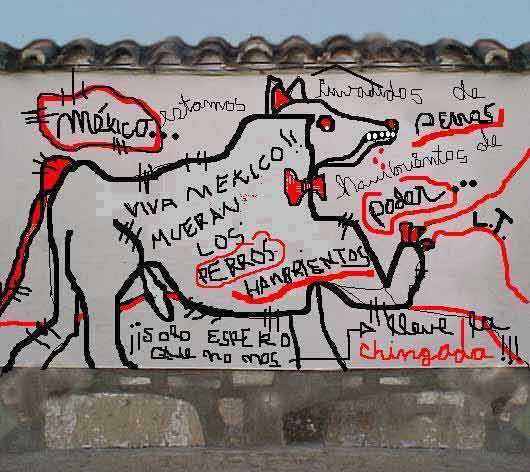 México... estamos Invadidos de
perros
Hambrientos de
poder...
VIVA MEXICO!!
MUERAN...
LOS
PERROS
HAMBRIENTOS
L.T.
¡¡Solo ESPERO
que no nos
lleve la
chingada!!!